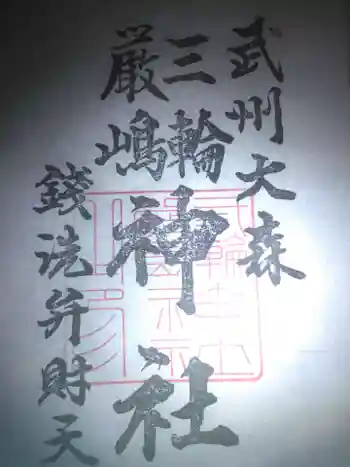 武州大森
三輪
厳嶋
神社
銭洗弁財天